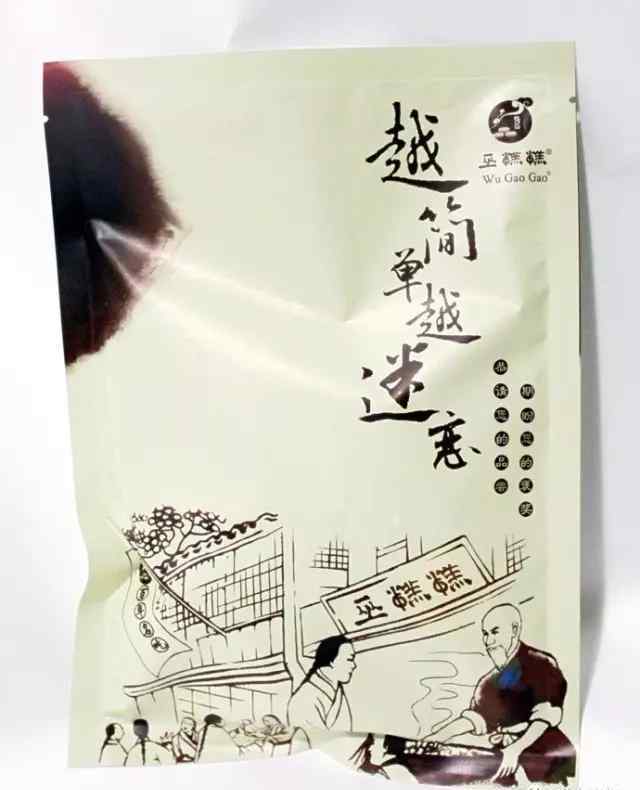 巫糕糕®
Wu Gao Gao®
越简单越迷恋
恭请您的品尝
期盼您的褒奖
巫糕糕